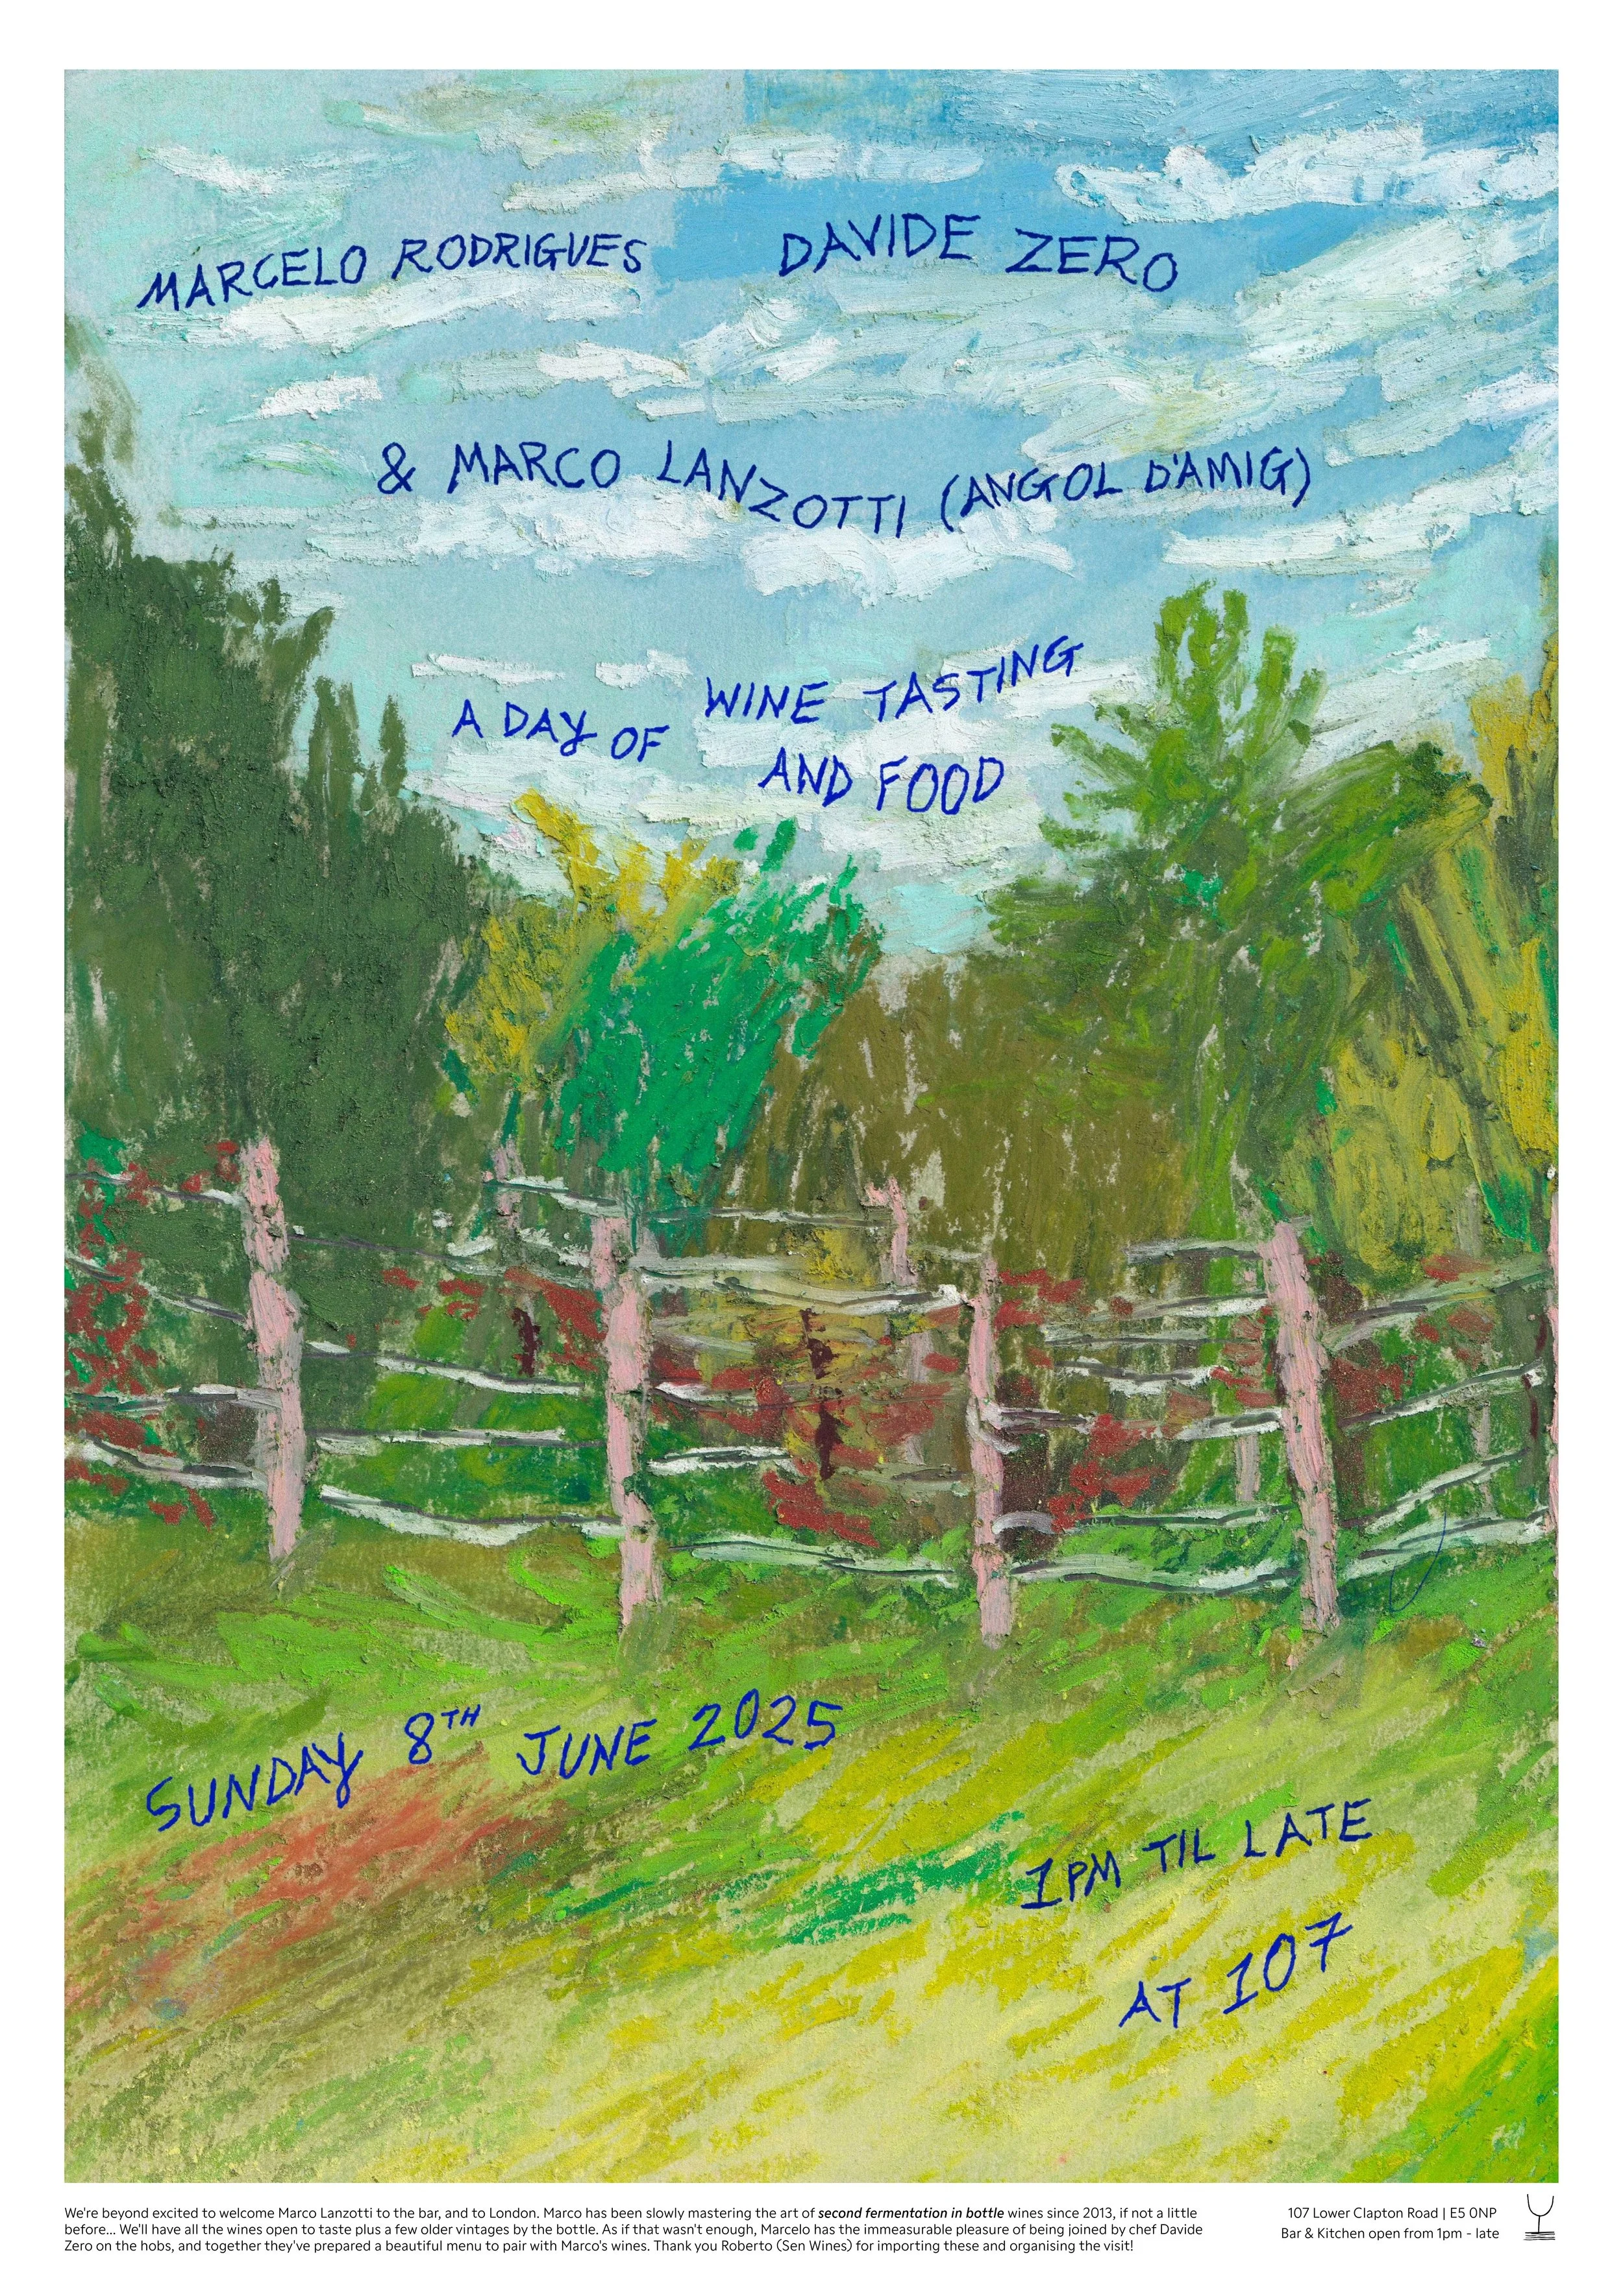 MARCELO RODRIGUES DAVIDE ZERO
& MARCO LANZOTTI (ANGOL D'AMIG)
A DAY OF WINE TASTING
AND FOOD
SUNDAY 8TH JUNE 2025
1PM TIL LATE
AT 107
We're beyond excited to welcome Marco Lanzotti to the bar, and to London. Marco has been slowly mastering the art of second fermentation in bottle wines since 2013, if not a little
before... We'll have all the wines open to taste plus a few older vintages by the bottle. As if that wasn't enough, Marcelo has the immeasurable pleasure of being joined by chef Davide
Zero on the hobs, and together they've prepared a beautiful menu to pair with Marco's wines. Thank you Roberto (Sen Wines) for importing these and organising the visit!
107 Lower Clapton Road | E5 0NP
Bar & Kitchen open from 1pm - late